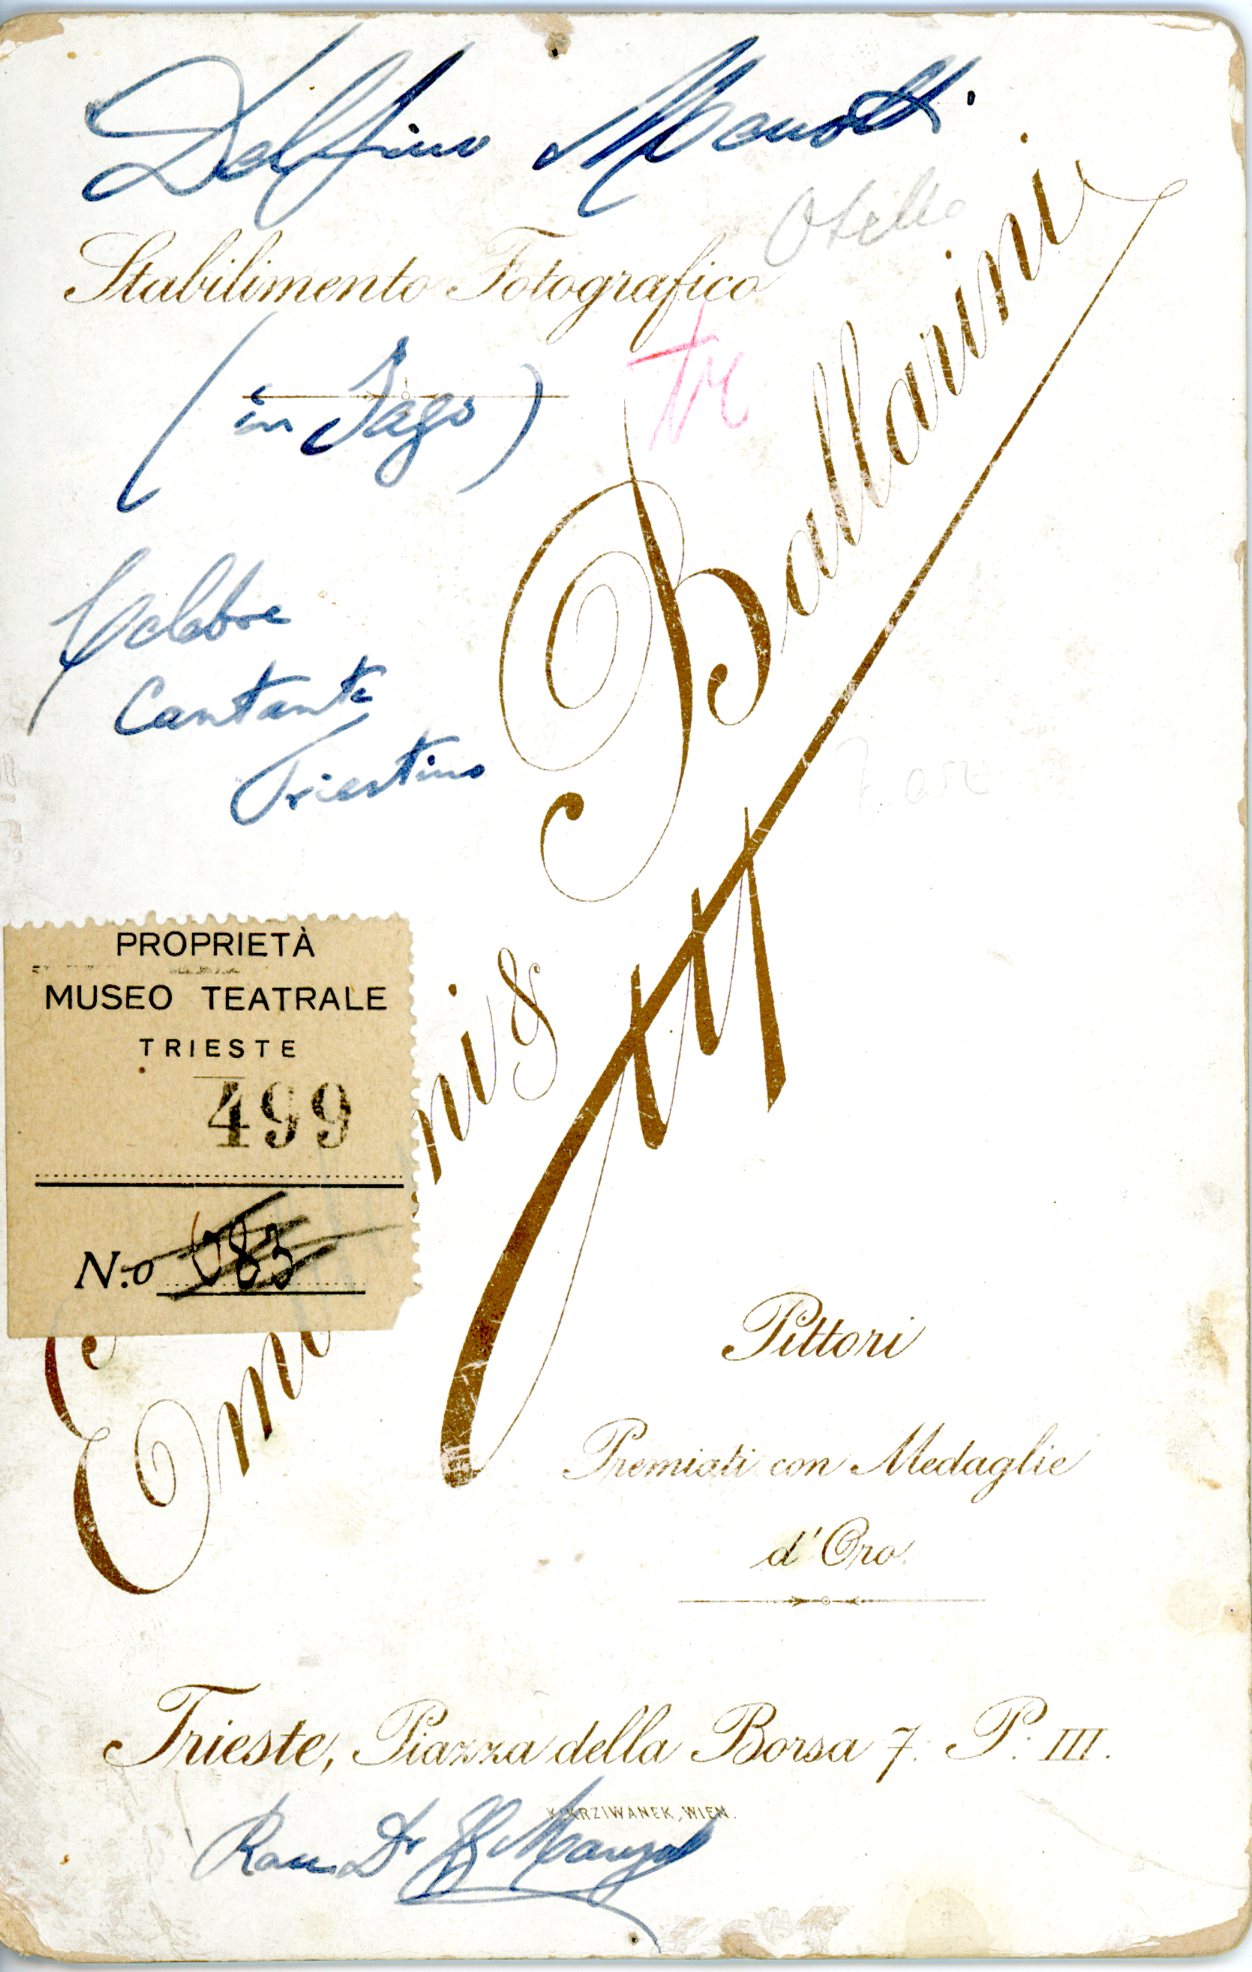 Delfino Menotti
Otello
Stabilimento Fotografico
(in Jago)
Celebre
Cantante
Triestino
& Ballarini
PROPRIETÀ
MUSEO TEATRALE
TRIESTE
499
N.o 083
Pittori
Premiati con Medaglie
d'Oro.
Trieste, Piazza della Borsa 7. P. III.
K. KRZIWANEK, WIEN.